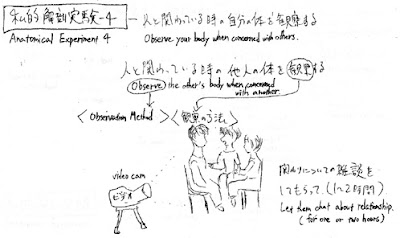 私的解剖実験-4 — 人と関わっている時の自分の体を観察する
Anatomical Experiment 4 Observe your body when concerned with others.
人と関わっている時の他人の体を観察する
Observe the other's body when concerned with another
<Observation Method> <観察の方法>
video cam
ビデオ
関係についての雑談を
してもらって。(1〜2時間)
Let them chat about relationship.
(for one or two hours)